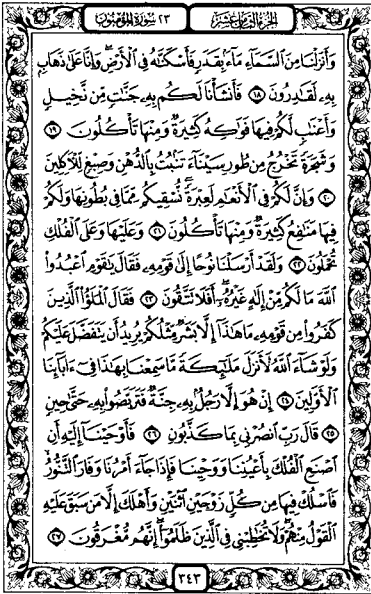 الجزء الثامن عشر ٢٣ سورة المؤمنون
وَأَنزَلْنَا مِنَ ٱلسَّمَآءِ مَآءًۢ بِقَدَرٍ فَأَسْكَنَّـٰهُ فِى ٱلْأَرْضِ ۖ وَإِنَّا عَلَىٰ ذَهَابٍۭ
بِهِۦ لَقَـٰدِرُونَ ١٨ فَأَنشَأْنَا لَكُم بِهِۦ جَنَّـٰتٍ مِّن نَّخِيلٍ
وَأَعْنَـٰبٍ لَّكُمْ فِيهَا فَوَٰكِهُ كَثِيرَةٌ وَمِنْهَا تَأْكُلُونَ ١٩
وَشَجَرَةً تَخْرُجُ مِن طُورِ سَيْنَآءَ تَنۢبُتُ بِٱلدُّهْنِ وَصِبْغٍ لِّلْـَٔاكِلِينَ
٢٠ وَإِنَّ لَكُمْ فِى ٱلْأَنْعَـٰمِ لَعِبْرَةً ۖ نُّسْقِيكُم مِّمَّا فِى بُطُونِهَا وَلَكُمْ
فِيهَا مَنَـٰفِعُ كَثِيرَةٌ وَمِنْهَا تَأْكُلُونَ ٢١ وَعَلَيْهَا وَعَلَى ٱلْفُلْكِ
تُحْمَلُونَ ٢٢ وَلَقَدْ أَرْسَلْنَا نُوحًا إِلَىٰ قَوْمِهِۦ فَقَالَ يَـٰقَوْمِ ٱعْبُدُوا۟
ٱللَّهَ مَا لَكُم مِّنْ إِلَـٰهٍ غَيْرُهُۥٓ ۖ أَفَلَا تَتَّقُونَ ٢٣ فَقَالَ ٱلْمَلَؤُا۟ ٱلَّذِينَ
كَفَرُوا۟ مِن قَوْمِهِۦ مَا هَـٰذَآ إِلَّا بَشَرٌ مِّثْلُكُمْ يُرِيدُ أَن يَتَفَضَّلَ عَلَيْكُمْ
وَلَوْ شَآءَ ٱللَّهُ لَأَنزَلَ مَلَـٰٓئِكَةً مَّا سَمِعْنَا بِهَـٰذَا فِىٓ ءَابَآئِنَا
ٱلْأَوَّلِينَ ٢٤ إِنْ هُوَ إِلَّا رَجُلٌۢ بِهِۦ جِنَّةٌ فَتَرَبَّصُوا۟ بِهِۦ حَتَّىٰ حِينٍ
٢٥ قَالَ رَبِّ ٱنصُرْنِى بِمَا كَذَّبُونِ ٢٦ فَأَوْحَيْنَآ إِلَيْهِ أَنِ
ٱصْنَعِ ٱلْفُلْكَ بِأَعْيُنِنَا وَوَحْيِنَا فَإِذَا جَآءَ أَمْرُنَا وَفَارَ ٱلتَّنُّورُ ۙ
فَٱسْلُكْ فِيهَا مِن كُلٍّ زَوْجَيْنِ ٱثْنَيْنِ وَأَهْلَكَ إِلَّا مَن سَبَقَ عَلَيْهِ
ٱلْقَوْلُ مِنْهُمْ ۖ وَلَا تُخَـٰطِبْنِى فِى ٱلَّذِينَ ظَلَمُوٓا۟ ۖ إِنَّهُم مُّغْرَقُونَ ٢٧
٣٤٣